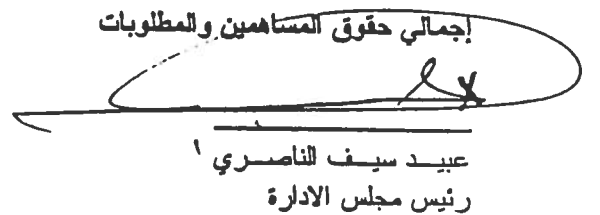 إجمالي حقوق المساهمين والمطلوبات
عبيد سيف الناصري
رئيس مجلس الادارة